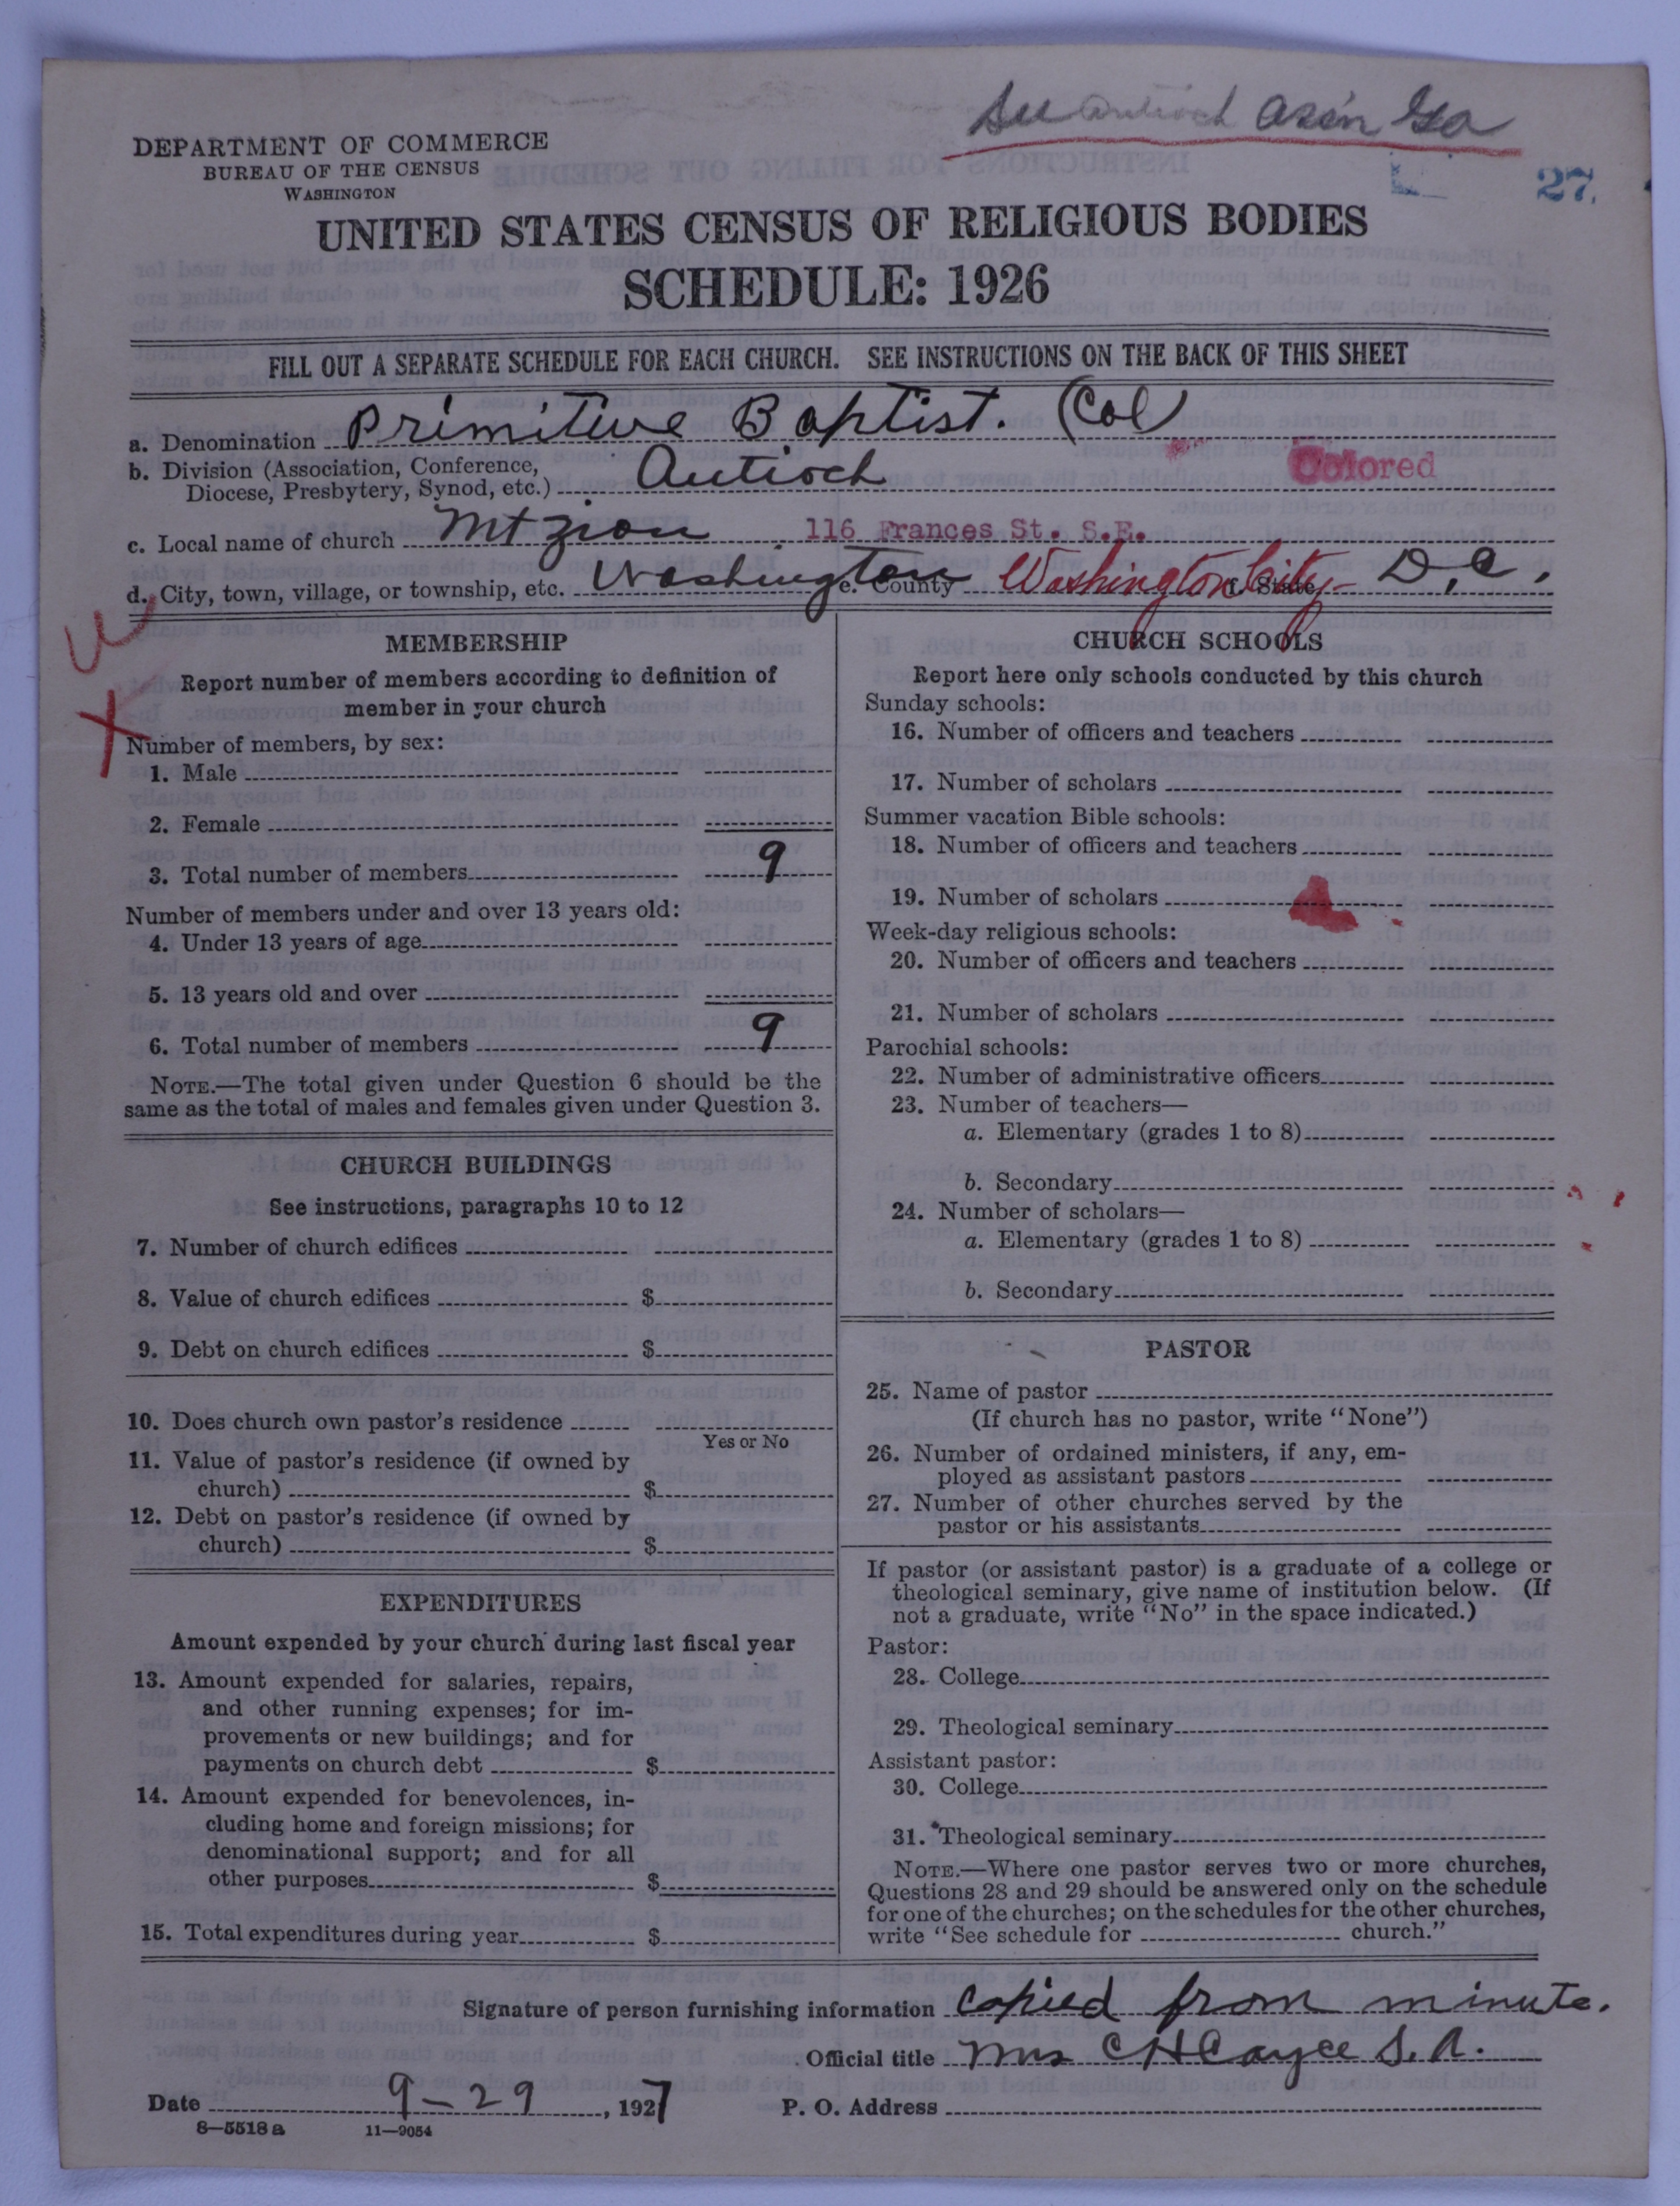 See Antioch Assn Ga
DEPARTMENT OF COMMERCE
BUREAU OF THE CENSUS
WASHINGTON
27.
UNITED STATES CENSUS OF RELIGIOUS BODIES
SCHEDULE: 1926
FILL OUT A SEPARATE SCHEDULE FOR EACH CHURCH. SEE INSTRUCTIONS ON THE BACK OF THIS SHEET
a. Denomination Primitive Baptist. (Col)
b. Division (Association, Conference, Diocese, Presbytery, Synod, etc.) Antioch Colored
c. Local name of church Mt Zion 116 Frances St. S.E.
d. City, town, village, or township, etc. Washington e. County Washington City f. State D.C.
MEMBERSHIP
Report number of members according to definition of
member in your church
Number of members, by sex:
1. Male
2. Female
3. Total number of members 9
Number of members under and over 13 years old:
4. Under 13 years of age
5. 13 years old and over
6. Total number of members 9
NOTE.—The total given under Question 6 should be the
same as the total of males and females given under Question 3.
CHURCH BUILDINGS
See instructions, paragraphs 10 to 12
7. Number of church edifices
8. Value of church edifices $
9. Debt on church edifices $
10. Does church own pastor's residence
Yes or No
11. Value of pastor's residence (if owned by
church) $
12. Debt on pastor's residence (if owned by
church) $
EXPENDITURES
Amount expended by your church during last fiscal year
13. Amount expended for salaries, repairs,
and other running expenses; for im-
provements or new buildings; and for
payments on church debt $
14. Amount expended for benevolences, in-
cluding home and foreign missions; for
denominational support; and for all
other purposes $
15. Total expenditures during year $
CHURCH SCHOOLS
Report here only schools conducted by this church
Sunday schools:
16. Number of officers and teachers
17. Number of scholars
Summer vacation Bible schools:
18. Number of officers and teachers
19. Number of scholars
Week-day religious schools:
20. Number of officers and teachers
21. Number of scholars
Parochial schools:
22. Number of administrative officers
23. Number of teachers—
a. Elementary (grades 1 to 8)
b. Secondary
24. Number of scholars—
a. Elementary (grades 1 to 8)
b. Secondary
PASTOR
25. Name of pastor
(If church has no pastor, write "None")
26. Number of ordained ministers, if any, em-
ployed as assistant pastors
27. Number of other churches served by the
pastor or his assistants
If pastor (or assistant pastor) is a graduate of a college or
theological seminary, give name of institution below. (If
not a graduate, write "No" in the space indicated.)
Pastor:
28. College
29. Theological seminary
Assistant pastor:
30. College
31. Theological seminary
NOTE.—Where one pastor serves two or more churches,
Questions 28 and 29 should be answered only on the schedule
for one of the churches; on the schedules for the other churches,
write "See schedule for church."
Signature of person furnishing information Copied from minute.
Official title Mrs C H Cayce S. A.
Date 9-29, 1927 P. O. Address
8—5518 a 11—9054